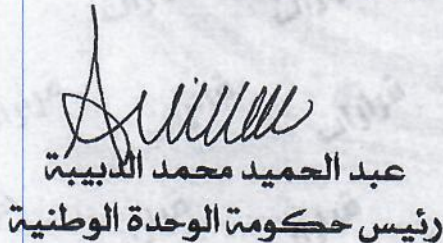 عبد الحميد محمد الدبيبة
رئيس حكومة الوحدة الوطنية